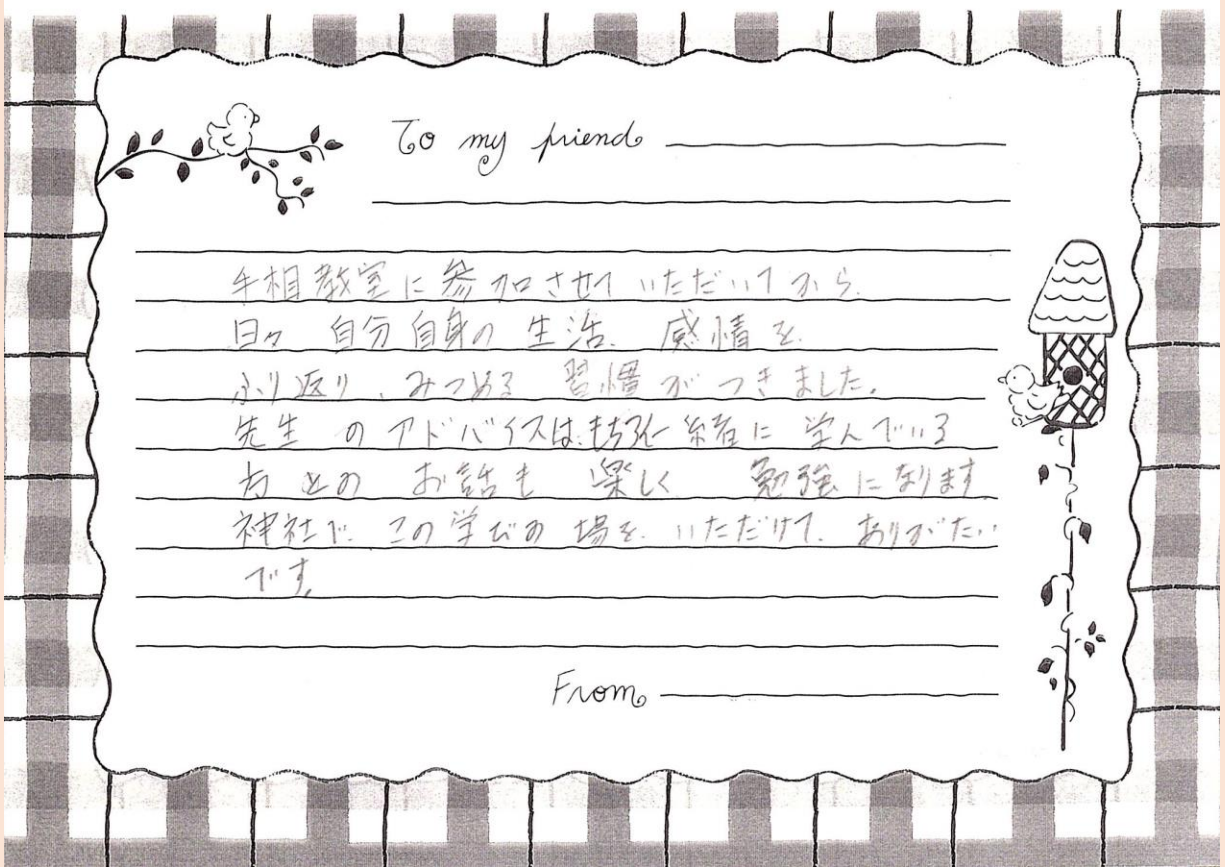 To my friend
手相教室に参加させていただいてから、
日々 自分自身の 生活、感情を
ふり返り、みつめる 習慣がつきました。
先生 のアドバイスは、もちろん一緒に 学んでいる
方との お話も 楽しく 勉強になります。
神社で、この学びの 場を、いただけて、ありがたい
です。
From